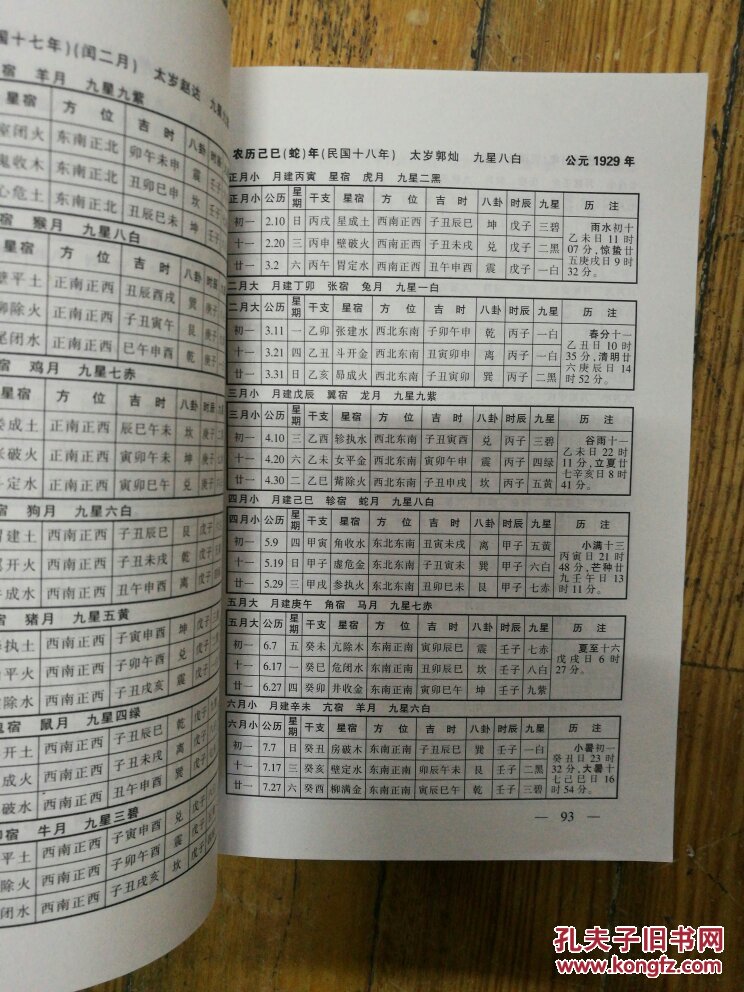 国十七年)(闰二月) 太岁赵达 九星
宿 羊月 九星九紫
星宿 方位 吉时 八卦
室闭火 东南正北 卯午未申 震
鬼收木 东南正北 丑卯巳申
心危土 东南正北 丑辰巳未 坤
宿 猴月 九星八白
壁平土 正南正西 丑辰酉戌 巽
柳除火 正南正西 子丑寅午 艮
尾闭水 正南正西 巳午申酉 乾
宿 鸡月 九星七赤
星宿 方位 吉时 八卦 时辰
娄成土 正南正西 辰巳午未 坎
张破火 正南正西 寅卯午未 震
斗定水 正南正西 寅卯巳午 兑
宿 狗月 九星六白
胃建土 西南正西 子丑辰巳 艮 戊子
翼开火 西南正西 子丑未戌 乾
牛成水 西南正西 丑午申酉 离
宿 猪月 九星五黄
执土 西南正西 子寅申酉 坤
平火 西南正西 子卯午未 兑
除水 西南正西 子丑戌亥 震
鬼宿 鼠月 九星四绿
开土 西南正西 子丑辰巳 乾
成火 西南正西 子丑未戌 离
破水 西南正西 丑午申酉 巽
柳宿 牛月 九星三碧
平土 西南正西 子寅申酉 兑 戊子
除火 西南正西 子卯午酉 震 戊子
闭水 西南正西 子丑戌亥 坎 戊子
农历己巳(蛇)年(民国十八年) 太岁郭灿 九星八白 公元1929年
正月小 月建丙寅 星宿 虎月 九星二黑
正月小 公历 星期 干支 星宿 方位 吉时 八卦 时辰 九星 历注
初一 2.10 日 丙戌 星成土 西南正西 子丑辰巳 坤 戊子 三碧
十一 2.20 三 丙申 壁破火 西南正西 子丑未戌 兑 戊子 二黑
廿一 3.2 六 丙午 胃定水 西南正西 丑午申酉 震 戊子 一白
雨水初十
乙未日11时
07分,惊蛰廿
五庚戌日9时
32分。
二月大 月建丁卯 张宿 兔月 九星一白
二月大 公历 星期 干支 星宿 方位 吉时 八卦 时辰 九星 历注
初一 3.11 一 乙卯 张建水 西北东南 子卯午申 乾 丙子 一白
十一 3.21 四 乙丑 斗开金 西北东南 子丑寅申卯 离 丙子 一白
廿一 3.31 日 乙亥 昴成火 西北东南 子丑寅卯 巽 丙子 二黑
春分十一
乙丑日10时
35分,清明廿
六庚辰日14
时52分。
三月小 月建戊辰 翼宿 龙月 九星九紫
三月小 公历 星期 干支 星宿 方位 吉时 八卦 时辰 九星 历注
初一 4.10 三 乙酉 轸执水 西北东南 子丑寅酉 兑 丙子 三碧
十一 4.20 六 乙未 女平金 西北东南 寅卯申午 震 丙子 四绿
廿一 4.30 二 乙巳 觜除火 西北东南 子丑申戌 坎 丙子 五黄
谷雨十一
乙未日22时
11分,立夏廿
七辛亥日8时
41分。
四月小 月建己巳 轸宿 蛇月 九星八白
四月小 公历 星期 干支 星宿 方位 吉时 八卦 时辰 九星 历注
初一 5.9 四 甲寅 角收水 东北东南 丑寅未戌 离 甲子 五黄
十一 5.19 日 甲子 虚危金 东北东南 子丑寅卯 巽 甲子 六白
廿一 5.29 三 甲戌 参执火 东北东南 丑卯巳未 艮 甲子 七赤
小满十三
丙寅日21时
48分,芒种廿
九壬午日13
时11分。
五月大 月建庚午 角宿 马月 九星七赤
五月大 公历 星期 干支 星宿 方位 吉时 八卦 时辰 九星 历注
初一 6.7 五 癸未 亢除木 东南正南 寅卯辰巳 震 壬子 七赤
十一 6.17 一 癸巳 危闭水 东南正南 丑卯辰巳 坎 壬子 八白
廿一 6.27 四 癸卯 井收金 东南正南 寅卯巳午 坤 壬子 九紫
夏至十六
戊戌日6时
27分。
六月小 月建辛未 亢宿 羊月 九星六白
六月小 公历 星期 干支 星宿 方位 吉时 八卦 时辰 九星 历注
初一 7.7 日 癸丑 房破木 东南正南 子丑辰巳 巽 壬子 一白
十一 7.17 三 癸亥 壁定水 东南正南 卯辰午未 艮 壬子 二黑
廿一 7.27 六 癸酉 柳满金 东南正南 寅辰巳午 乾 壬子 三碧
小暑初一
癸丑日23时
32分,大暑十
七己巳日16
时54分。
— 93 —
孔夫子旧书网
www.kongfz.com